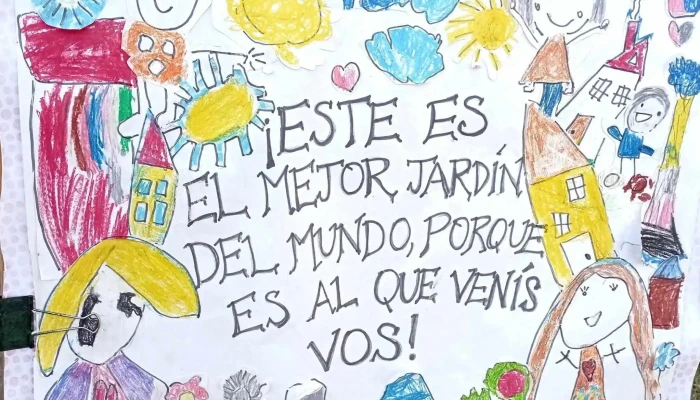 ¡ESTE ES
EL MEJOR JARDÍN
DEL MUNDO, PORQUE
ES AL QUE VENÍS
VOS!